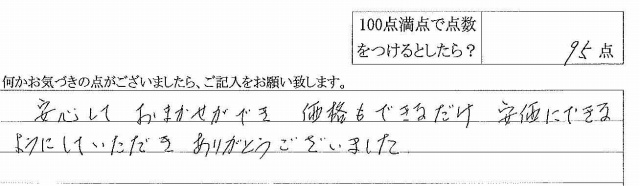 100点満点で点数
をつけるとしたら？
95点
何かお気づきの点がございましたら、ご記入をお願い致します。
安心して おまかせができ 価格もできるだけ 安価にできる
ようにしていただき ありがとうございました